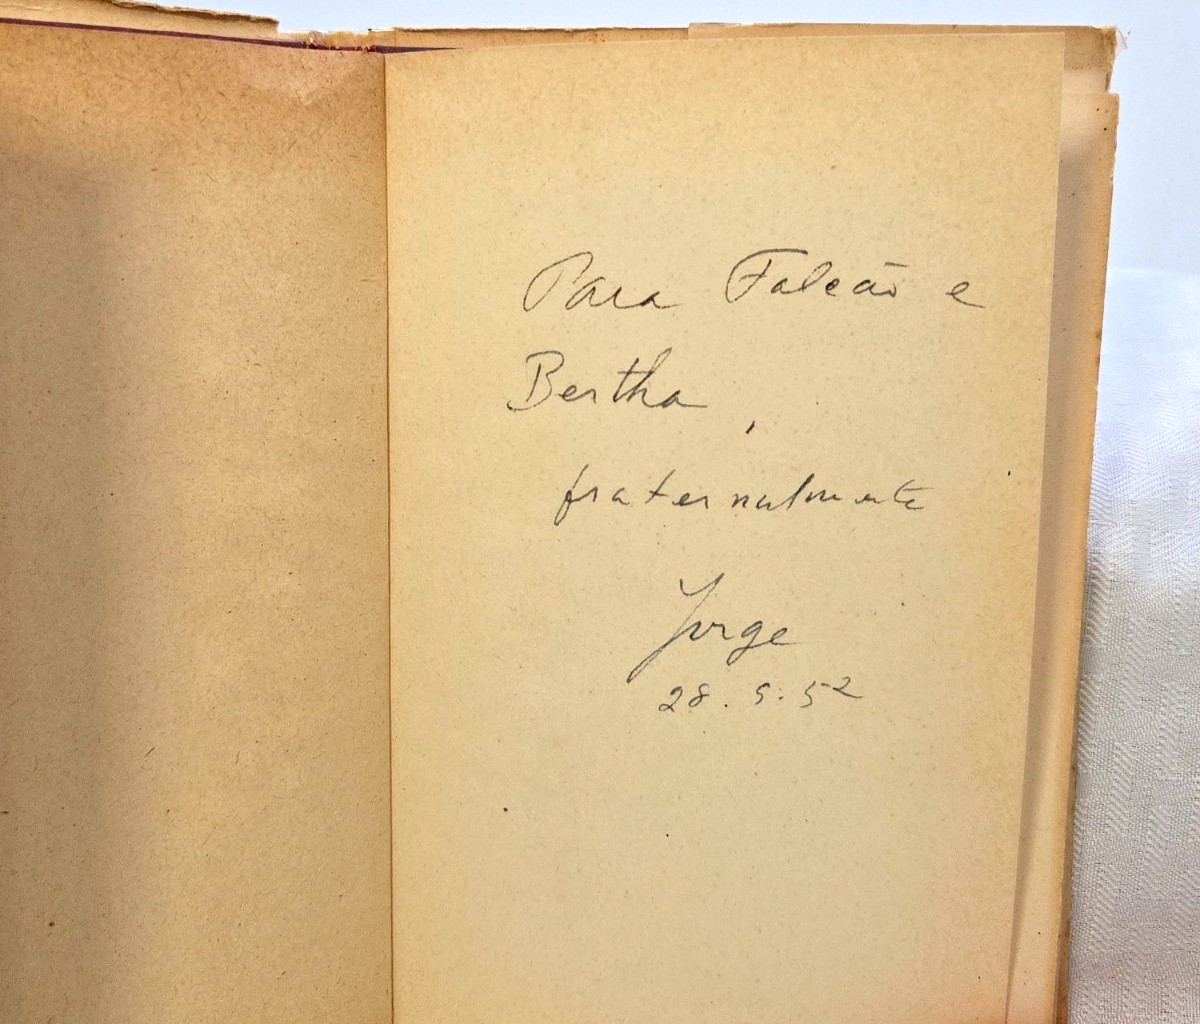 Para Falcão e
Bertha,
fraternalmente
Jorge
28.5.52